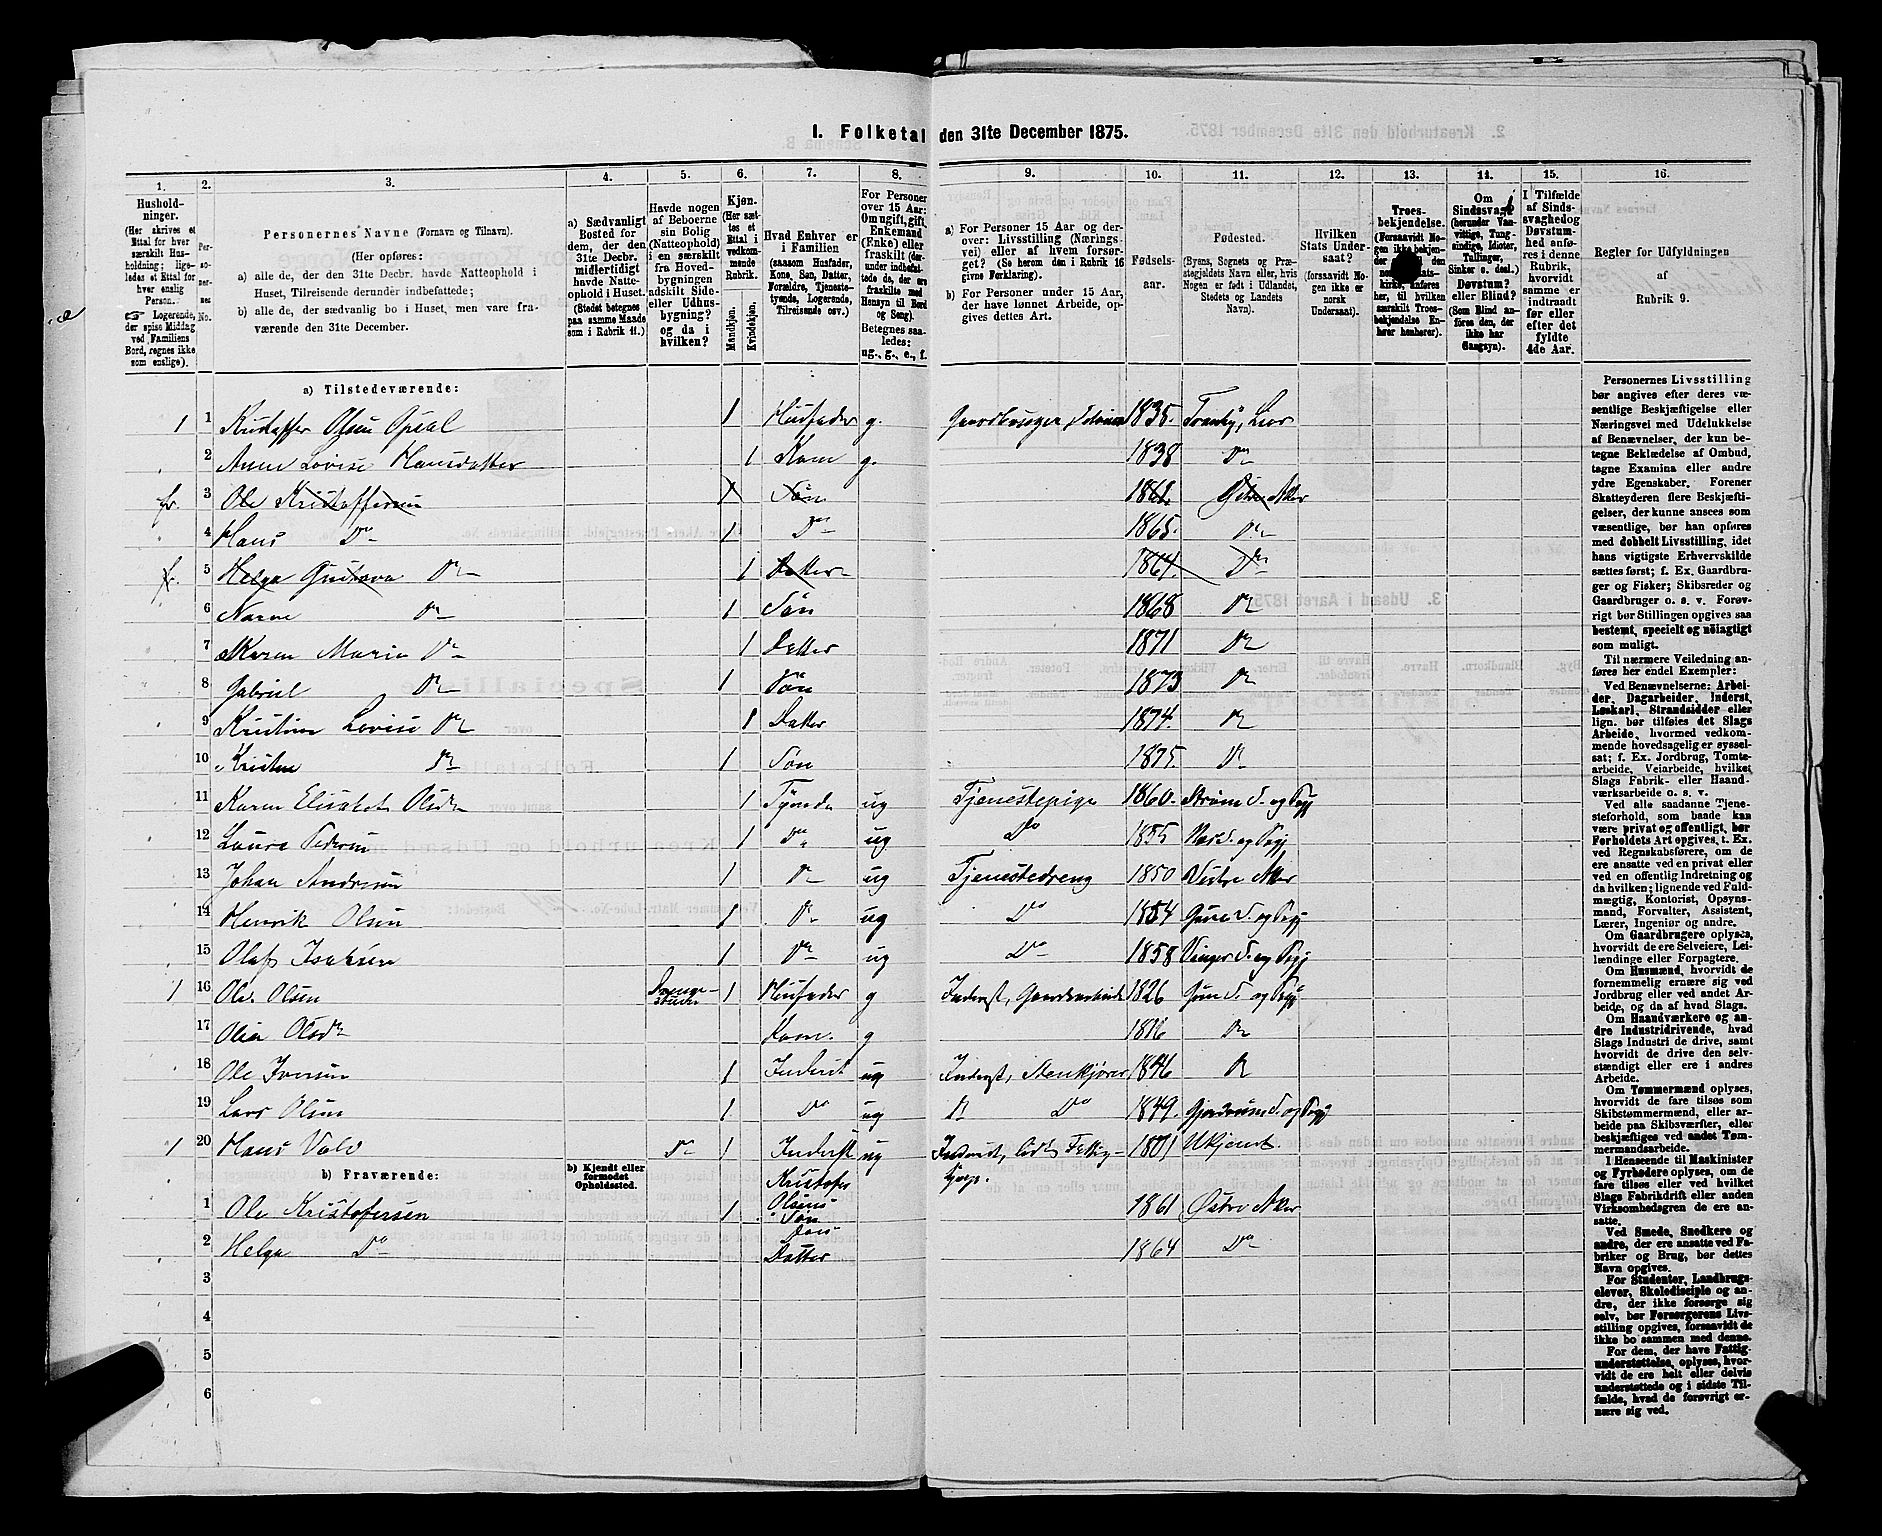 I. Folketal den 31te December 1875.
1. 2. 3. 4. 5. 6. 7. 8. 9. 10. 11. 12. 13. 14. 15. 16.
Husholdninger. (Her skrives et Ettal for hver særskilt Husholdning; ligeledes et Ettal for hver enslig Person.)
☞ Logerende, der spise Middag ved Familiens Bord, regnes ikke som enslige).
Personernes No.
Personernes Navne (Fornavn og Tilnavn).
(Her opføres:
a) alle de, der den 31te Decbr. havde Natteophold i Huset, Tilreisende derunder indbefattede;
b) alle de, der sædvanlig bo i Huset, men vare fraværende den 31te December.
a) Sædvanligt Bosted for dem, der den 31te Decbr. midlertidigt havde Natteophold i Huset. (Stedet betegnes paa samme Maade som i Rubrik 11.)
Havde nogen af Beboerne sin Bolig (Natteophold) i en særskilt fra Hovedbygningen adskilt Side- eller Udhusbygning? og da i hvilken?
Kjøn. (Her sættes et Ettal i vedkommende Rubrik.
Mandkjøn. Kvindekjøn.
Hvad Enhver er i Familien (saasom Husfader, Kone, Søn, Datter, Forældre, Tjenestetyende, Logerende, Tilreisende osv.)
For Personer over 15 Aar: Om ugift, gift, Enkemand (Enke) eller fraskilt (derunder indbefattede de, der ere fraskilte med Hensyn til Bord og Seng). Betegnes saaledes: ug., g., e., f.
a) For Personer 15 Aar og derover: Livsstilling (Næringsvei) eller af hvem forsørget? (Se herom den i Rubrik 16 givne Forklaring).
b) For Personer under 15 Aar, der have lønnet Arbeide, opgives dettes Art.
Fødselsaar.
Fødested. (Byens, Sognets og Præstegjeldets Navn eller, hvis Nogen er født i Udlandet, Stedets og Landets Navn).
Hvilken Stats Undersaat? (forsaavidt Nogen ikke er norsk Undersaat).
Troesbekjendelse.
Om Sindssvag? (herunder Vanvittige, Tungsindige, Idioter, Tullinger, Sinker o. desl.) Døvstum? eller Blind? (Som Blind anføres den, der ikke har Gangsyn).
I Tilfælde af Sindssvaghed og Døvstumhed anføres i denne Rubrik, hvorvidt samme er indtraadt før eller efter det fyldte 4de Aar.
Regler for Udfyldningen af Rubrik 9.
a) Tilstedeværende:
1 1 Kristoffer Olsen Opsal 1 Husfader g. Gaardbruger Selveier 1835. Tranby, Lier
2 Anne Lovise Hansdatter 1 Kone g. 1838 Do
fr. 3 Ole Kristoffersen Søn 1861. Østre Aker
4 Hans Do 1 Do 1865. Do
fr. 5 Helga Gustava Do 1 Datter 1864. Do
6 Do 1 Søn 1868 Do
7 Karen Marie Do 1 Datter 1871 Do
8 Gabriel Do 1 Søn 1873 Do
9 Kristine Lovise Do 1 Datter 1874. Do
10 Do 1 Søn 1875. Do
11 Karen Elisabet Olsdr 1 Tyende ug Tjenestepige 1860. Strøm S. og Prgj
12 Laura Pedersen 1 Do ug Do 1855 Næs S. og Prgj
13 Johan Andersen 1 Do ug Tjenestedreng 1850 Vestre Aker
14 Henrik Olsen 1 Do ug Do 1854 S. og Prgj
15 Olaf Isaksen 1 Do ug Do 1858 Vinger S. og Prgj
1 16 Ole Olsen Drengestuen 1 Husfader g Inderst, Gaardsarbeide 1826 S. og Prgj
17 Olea Olsdr Kone. g Do
18 Ole Iversen 1 Inderst ug Inderst, Stenkjører 1846 Do
19 Lars Olsen 1 Do ug Do Do 1849. Gjerdrum S. og Prgj
1 20 Hans Vold Do 1 Inderst ug Inderst, 1801 Ukjendt
b) Fraværende:
b) Kjendt eller formodet Opholdssted.
1 Ole Kristofersen 1 Kristofer Olsens Søn 1861 Østre Aker
2 Helga Do Datter 1864 Do
3
4
5
6
Personernes Livsstilling
bør angives efter deres væsentlige Beskjæftigelse eller
Næringsvei med Udelukkelse
af Benævnelser, der kun betegne Beklædelse af Ombud,
tagne Examina eller andre
ydre Egenskaber. Forener
Skatteyderen flere Beskjæftigelser, der kunne ansees som
væsentlige, bør han opføres
med dobbelt Livsstilling, idet
hans vigtigste Erhvervskilde
sættes først; f. Ex. Gaardbruger og Fisker; Skibsreder og
Gaardbruger o. s. v. Forøvrigt bør Stillingen opgives saa
bestemt, specielt og nøiagtigt
som muligt.
Til nærmere Veiledning anføres her endel Exempler:
Ved Benævnelserne: Arbeider, Dagarbeider, Inderst,
Løskarl, Strandsidder eller
lign. bør tilføies det Slags
Arbeide, hvormed vedkommende hovedsagelig er sysselsat; f. Ex. Jordbrug, Tomtearbeide, Veiarbeide, hvilket
Slags Fabrik- eller Haandværksarbeide o. s. v.
Ved alle saadanne Tjenesteforhold, som baade kan
være privat og offentligt, bør
Forholdets Art opgives, t. Ex.
ved Regnskabsførere, om de
ere ansatte ved en privat eller
ved en offentlig Indretning og
da hvilken; lignende ved Fuldmægtig, Kontorist, Opsynsmand, Forvalter, Assistent,
Lærer, Ingeniør og andre.
Om Gaardbrugere oplyses,
hvorvidt de ere Selveiere, Leilændinge eller Forpagtere.
Om Husmænd, hvorvidt de
fornemmelig ernære sig ved
Jordbrug eller ved andet Arbeide, og da af hvad Slags.
Om Haandværkere og andre Industridrivende, hvad
Slags Industri de drive, samt
hvorvidt de drive den selvstændigt eller ere i andres
Arbeide.
Om Tømmermænd oplyses,
hvorvidt de fare tilsøs som
Skibstømmermænd, eller arbeide paa Skibsværfter, eller
beskjæftiges ved andet Tømmermandsarbeide.
I Henseende til Maskinister
og Fyrbødere oplyses, om de
fare tilsøs eller ved hvilket
Slags Fabrikdrift eller anden
Virksomhedsgren de ere ansatte.
Ved Smede, Snedkere og
andre, der ere ansatte ved Fabriker og Brug, bør dettes
Navn opgives.
For Studenter, Landbrugselever, Skoledisciple og andre, der ikke forsørge sig
selv, bør Forsørgerens Livsstilling opgives, forsaavidt de
ikke bo sammen med denne.
For dem, der have Fattigunderstøttelse, oplyses, hvorvidt de ere helt eller delvis
understøttede og i sidste Tilfælde, hvad de forøvrigt ernære sig ved.